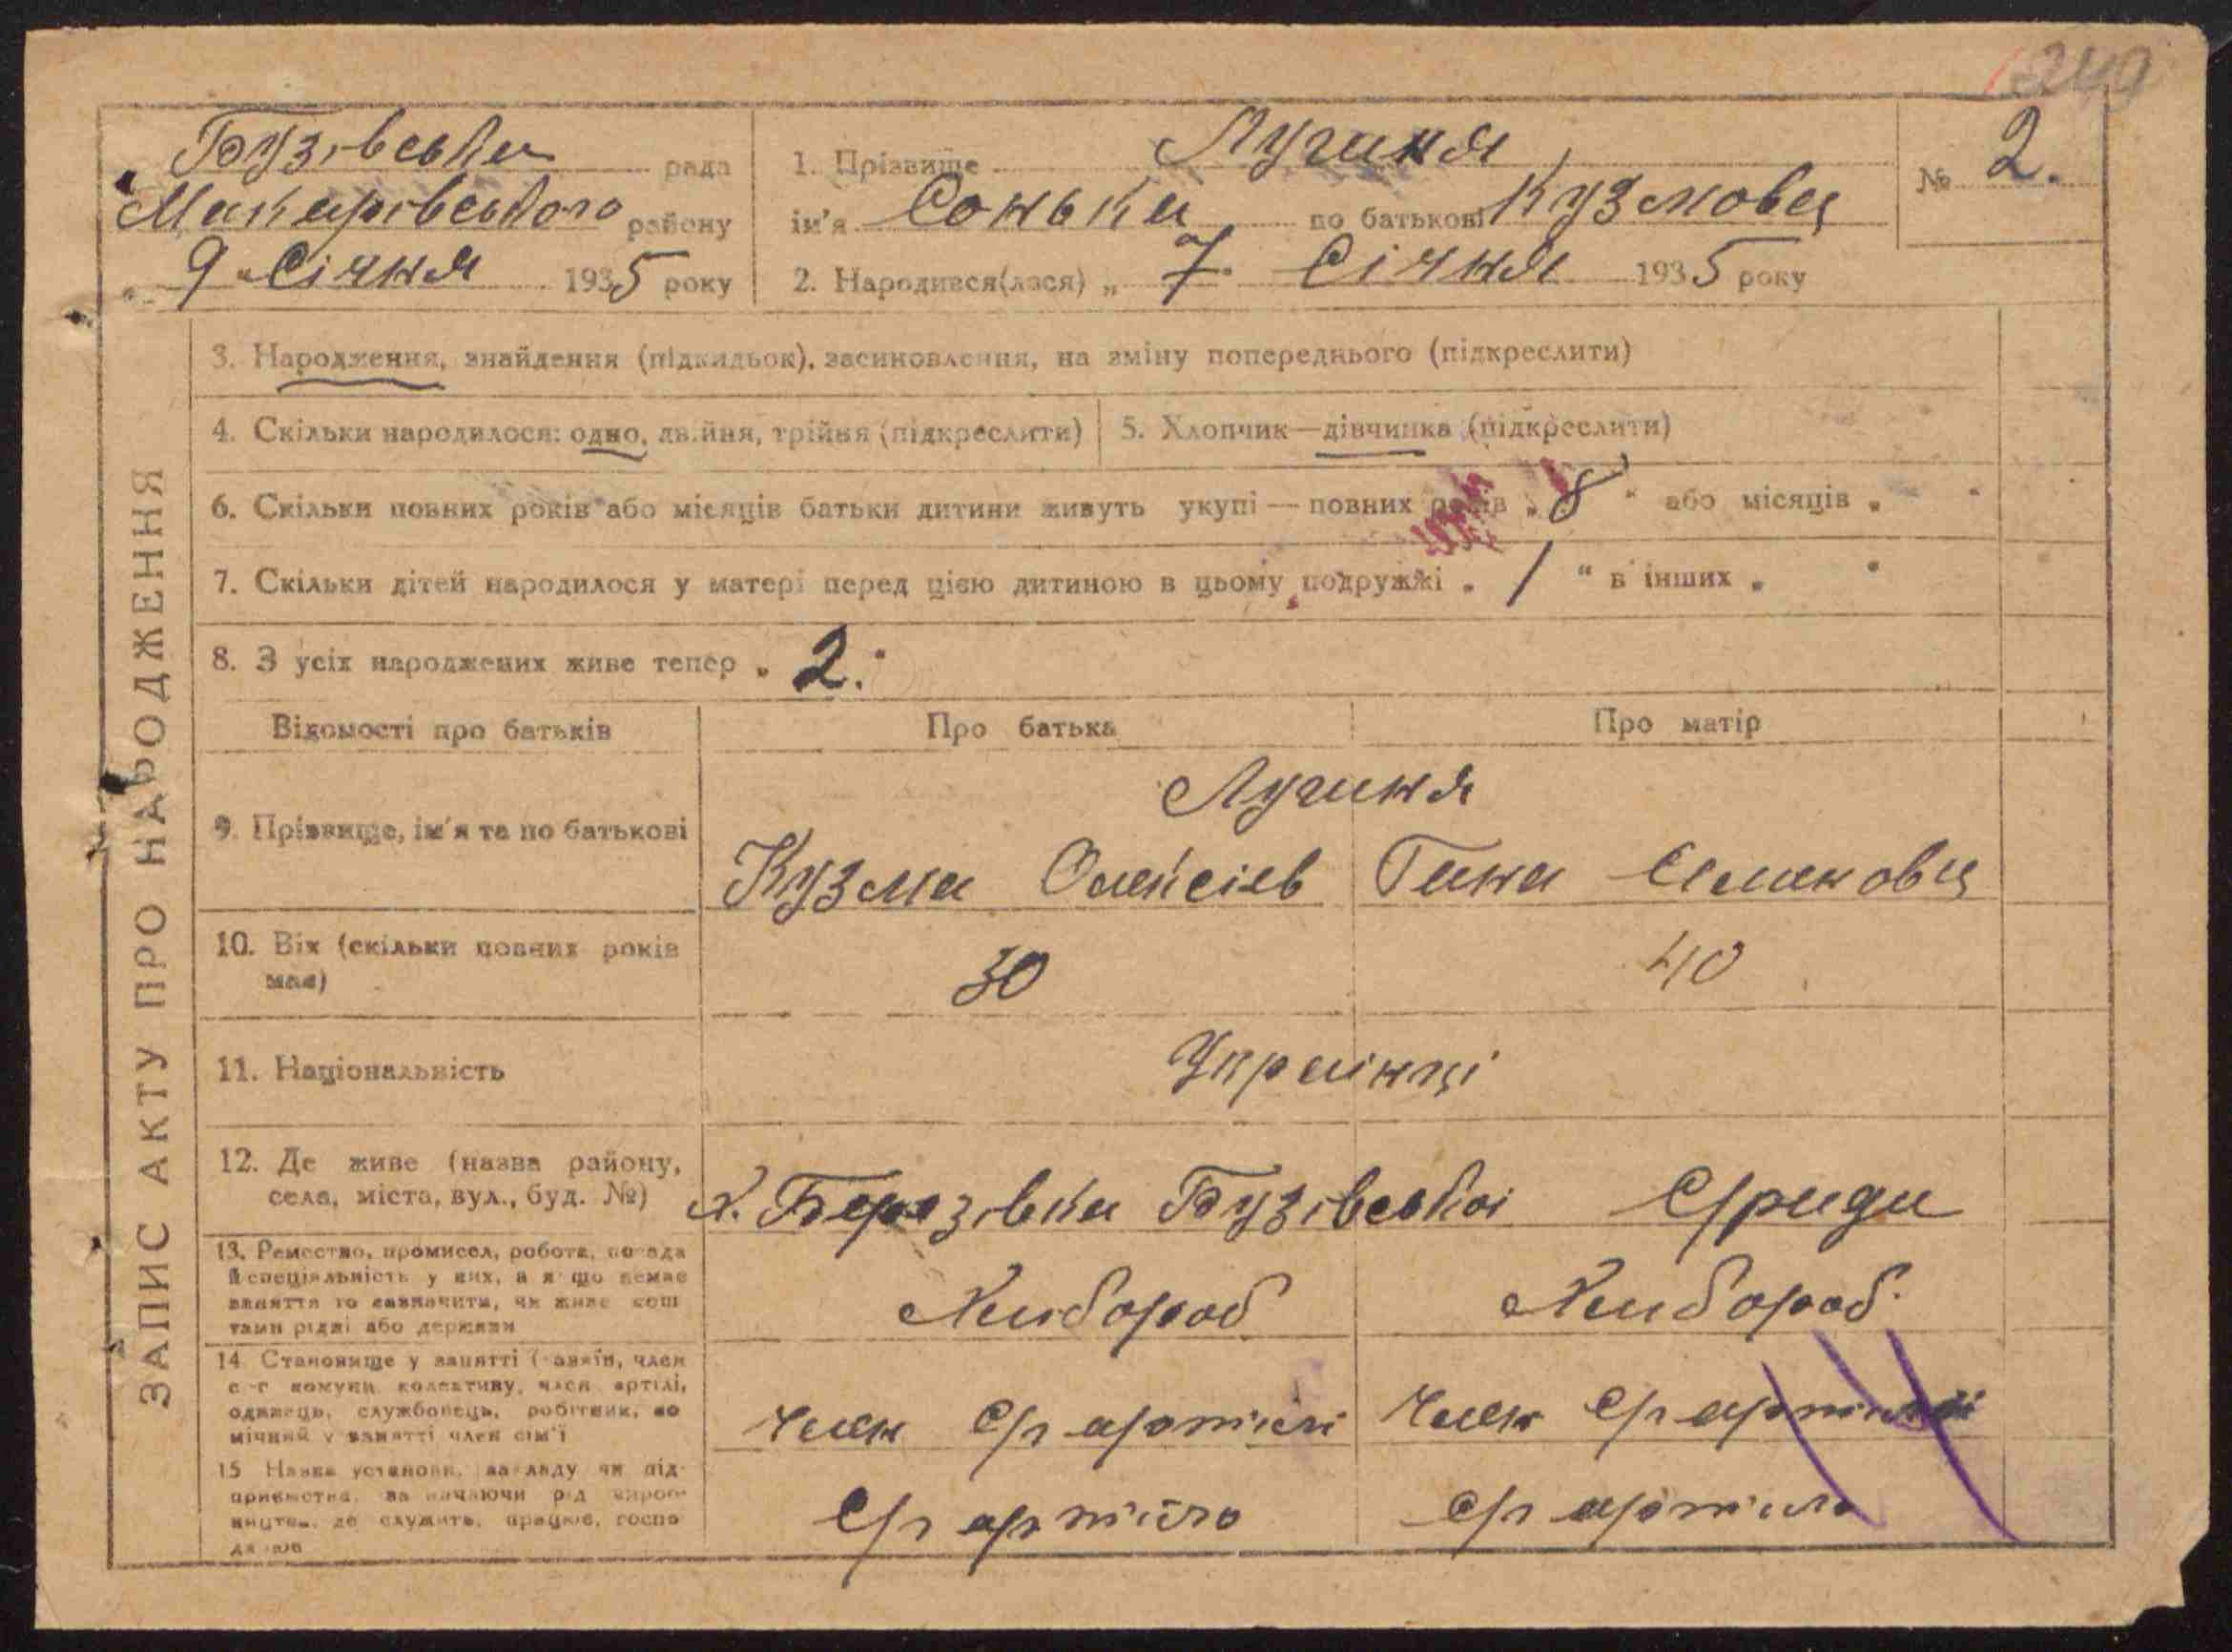 249
Бузівська рада
Макарівського району
9 Січня 1935 року
1. Прізвище Лугиня
ім'я Сонька по батькові Кузмовн
2. Народився(лася) „ 7 Січня 1935 року
№ 2.
ЗАПИС АКТУ ПРО НАРОДЖЕННЯ
3. Народження, знайдення (підкидьок), засиновлення, на зміну попереднього (підкреслити)
4. Скільки народилося: одно, двійня, трійня (підкреслити)
5. Хлопчик—дівчинка (підкреслити)
6. Скільки повних років або місяців батьки дитини живуть укупі — повних років „ 8 “ або місяців „ “
7. Скільки дітей народилося у матері перед цією дитиною в цьому подружжі „ 1 “ в інших „ “
8. З усіх народжених живе тепер „ 2. “
Відомості про батьків Про батька Про матір
Лугиня
9. Прізвище, ім'я та по батькові
Кузма Олексієв Гана
10. Вік (скільки повних років
має)
30 40
11. Національність
Українці
12. Де живе (назва району,
села, міста, вул., буд. №)
х. Березівка Бузівської С/ради
13. Ремество, промисел, робота, посада
й спеціяльність у них, а якщо немає
заняття то зазначити, чи живе кош
тами рідні або держави
Хлибороб Хлибороб.
14 Становище у занятті (хазяїн, член
с-г комуни колективу, член артілі,
одинець, службовець, робітник, по
мічний у занятті член сім'ї
член С/г артілі член С/г артілі
15 Назва установи, закладу чи під-
приємства, зазначаючи рід вироб-
ництва, де служить, працює, госпо
дарює
С/г артіль С/г артіль